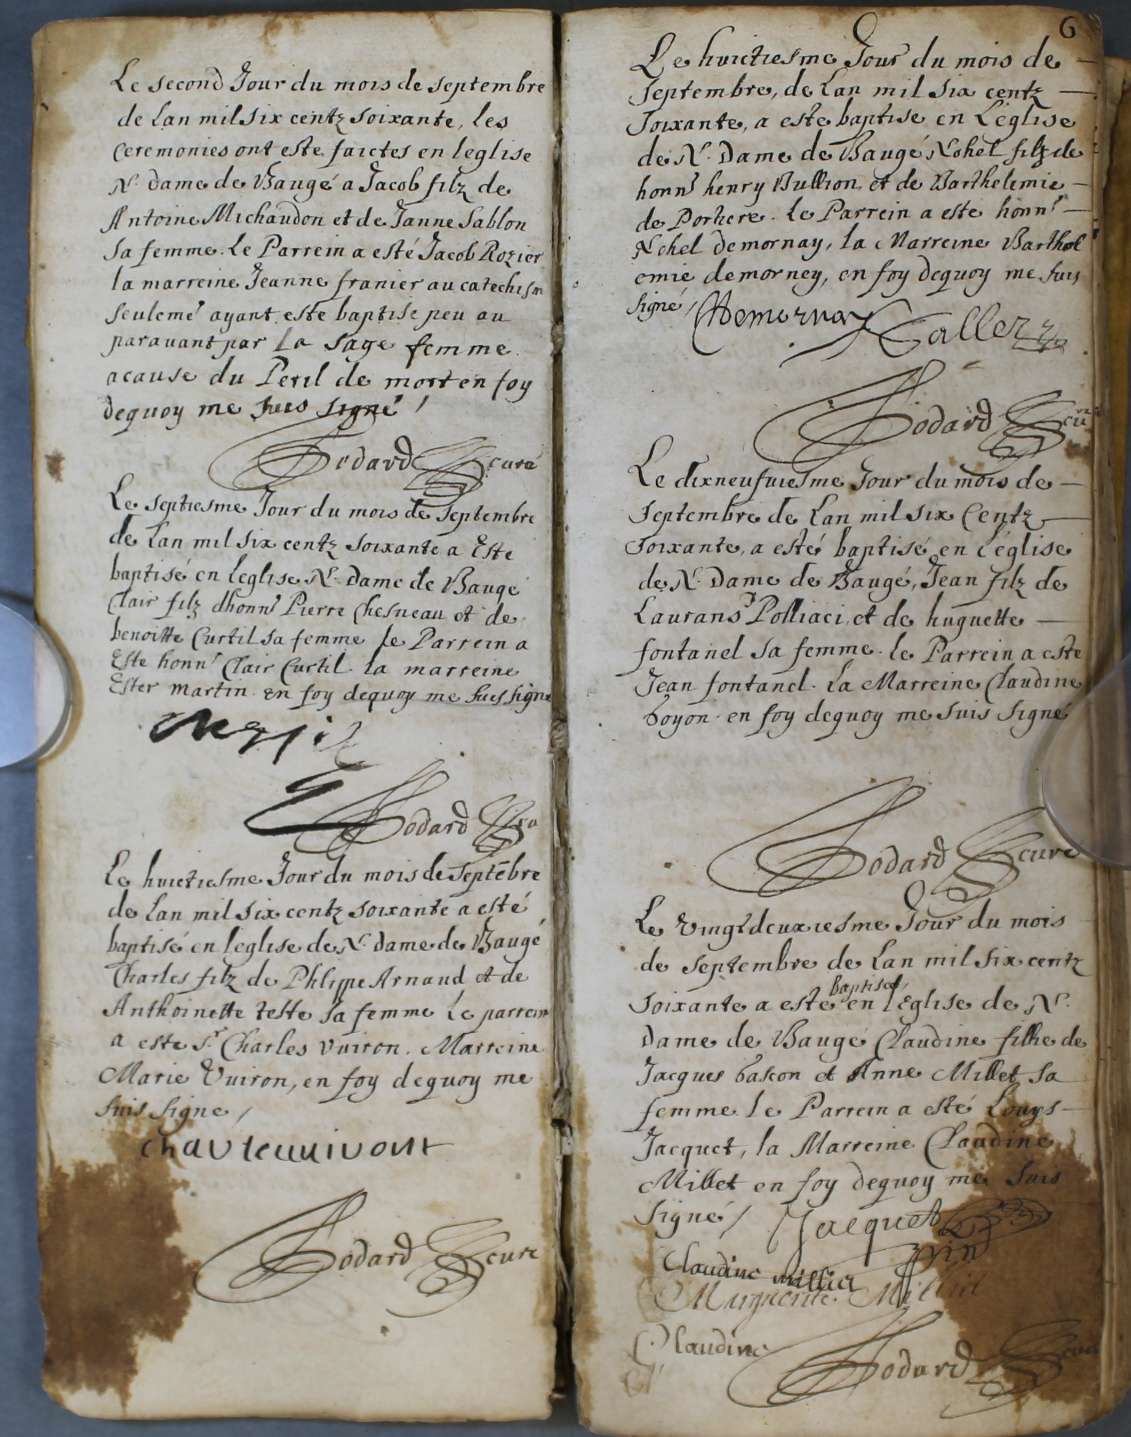 Le second Jour du mois de septembre
de Lan mil six centz soixante, les
ceremonies ont este faictes en leglise
N. dame de Baugé a Jacob filz de
Antoine Michaudon et de Janne Sablon
sa femme. Le Parrein a esté Jacob Rozier
la marreine Jeanne franier au catechism
seulemt ayant este baptisé peu au
paravant par la sage femme
a cause du Peril de mort en foy
dequoy me suis signé /
Dodard curé
Le septiesme Jour du mois de septembre
de Lan mil six centz soixante a Este
baptisé en leglise N. Dame de Baugé
Clair filz dhonnr Pierre Chesneau et de
benoitte Curtil sa femme le Parrein a
Este honnr Clair Curtil. la marreine
Ester martin. En foy dequoy me suis signé
Dodard
Le huictiesme Jour du mois de Septēbre
de Lan mil six centz soixante a esté
baptisé en leglise de N. dame de Baugé
Charles filz de Phlippe Arnaud et de
Anthoinette teste sa femme Le parrein
a este Sr Charles Vuiron. Marreine
Marie Vuiron, en foy dequoy me
suis signe /
Dodard cure
6
Le huictiesme Jour du mois de
Septembre, de Lan mil six centz
soixante, a este baptisé en Leglise
de N. Dame de Baugé Nohel filz de
honnr henry Bullion et de Barthelemie
de Porhere. le Parrein a este honnr
Nohel demornay, la Marreine Barthol
emie demorney, en foy dequoy me suis
signé / Demornay
Dodard cure
Le dixneufuiesme Jour du mois de
Septembre de Lan mil six Centz
soixante, a esté baptisé en L'eglise
de N. Dame de Baugé, Jean filz de
Laurans Polliaci et de huguette
fontanel sa femme. le Parrein a este
Jean fontanel. la Marreine Claudine
boyon. en foy dequoy me suis signé
Dodard cure
Le Vingt deuxiesme Jour du mois
de septembre de Lan mil six centz
soixante a esté baptisée en l'Eglise de N.
Dame de Baugé Claudine fillie de
Jacques bascon et Anne Millet sa
femme le Parrein a esté Louys
Jacquet, la Marreine Claudine
Millet en foy dequoy me suis
signé / Jacquet
Claudine millier
Claudine
Dodard